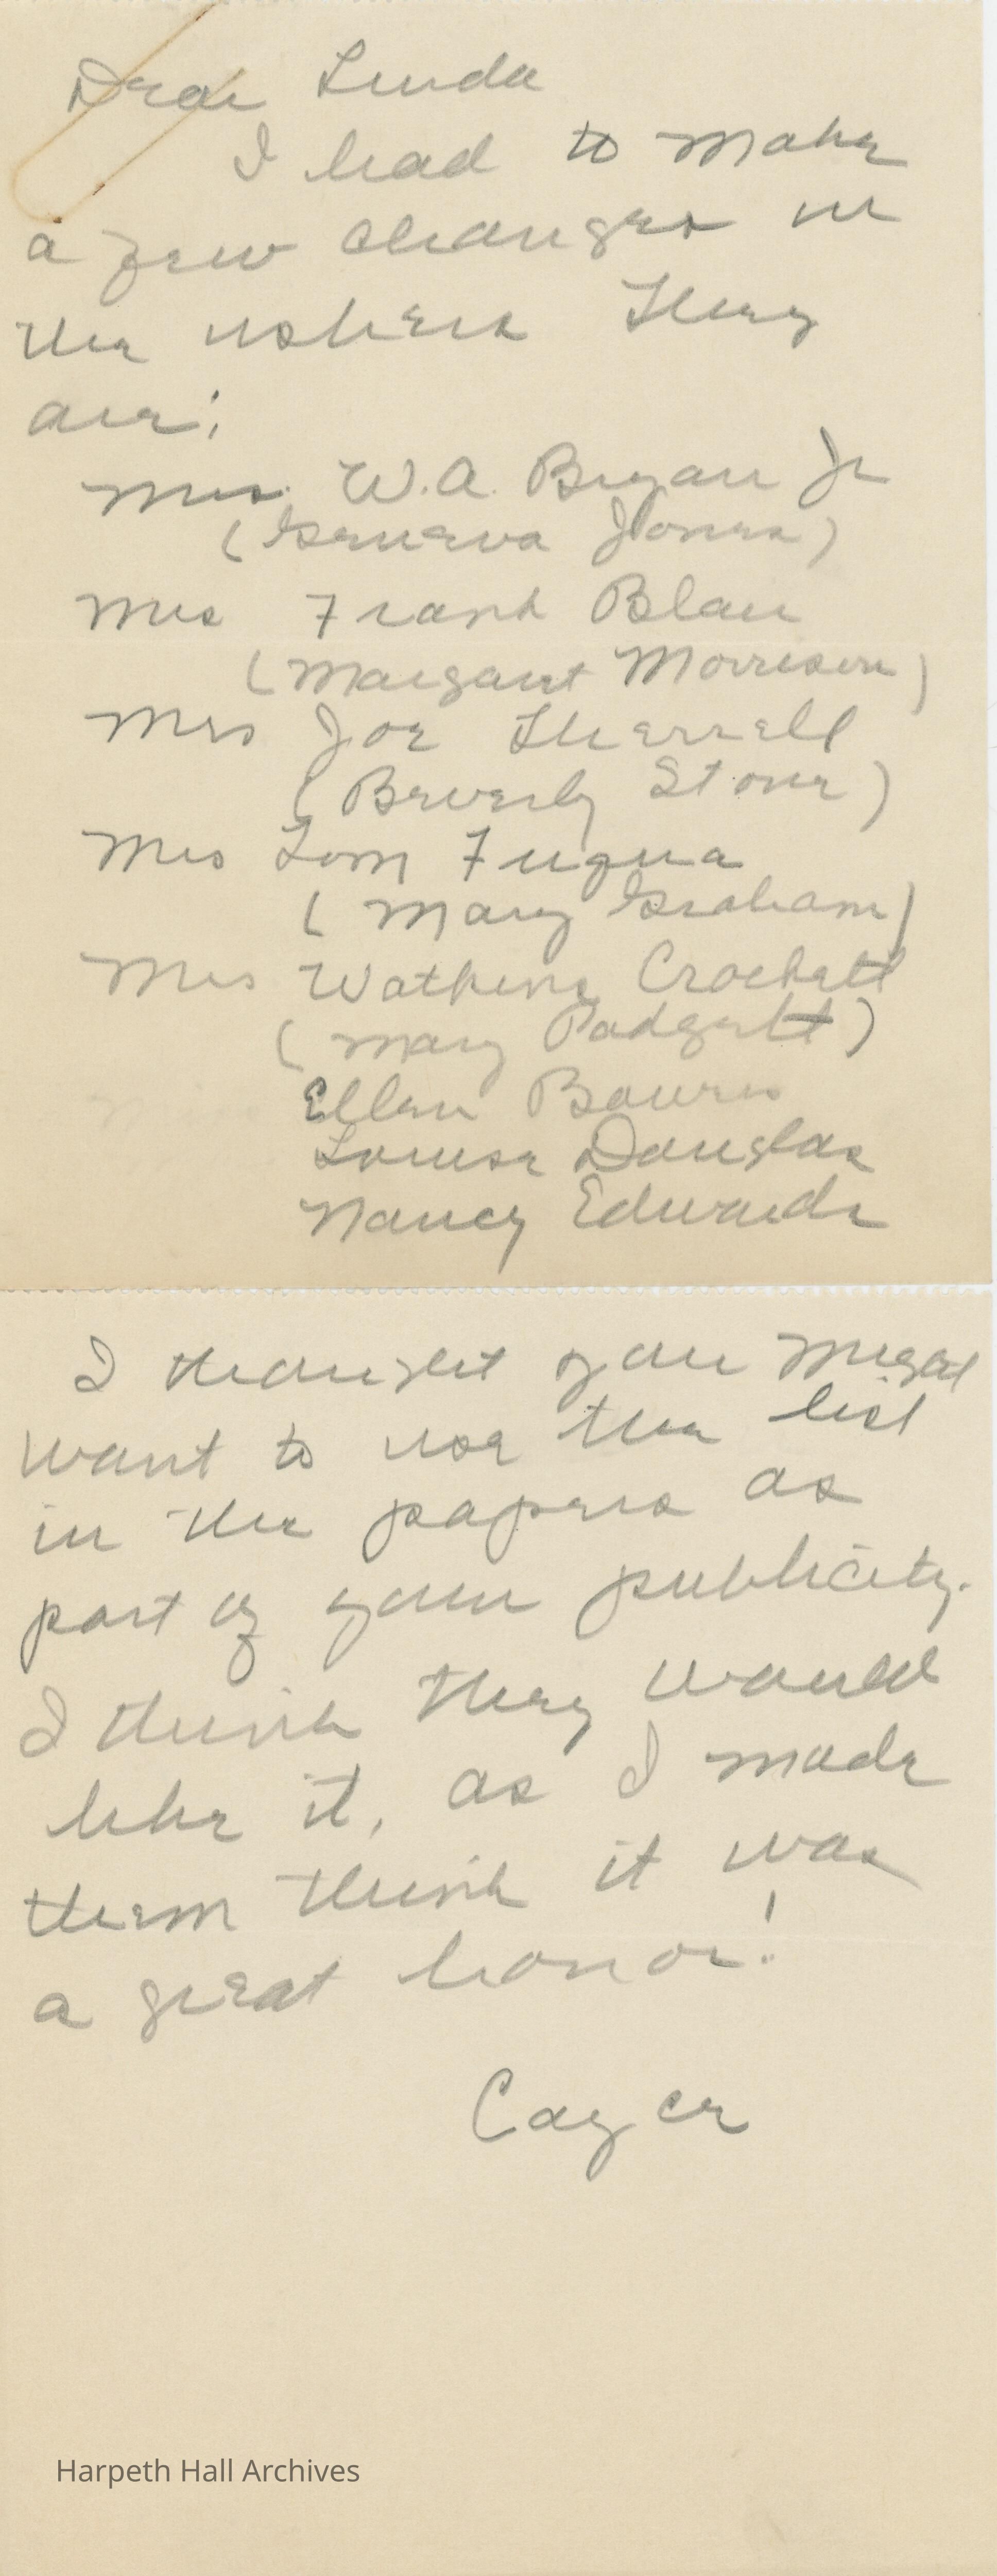 Dear Linda
I had to make
a few changes in
the ushers They
are:
Mrs. W.A. Bryan Jr
(Geneva Jones)
Mrs Frank Blair
(Margaret Morrison)
Mrs Joe Sherrell
(Beverly Stone)
Mrs Tom Fuqua
(Mary Graham)
Mrs Watkins Crockett
(Mary Padgett)
Ellen Bowers
Louise Douglas
Nancy Edwards
I thought you might
want to use the list
in the papers as
part of your publicity.
I think they would
like it, as I made
them think it was
a great honor!
Cayce
Harpeth Hall Archives